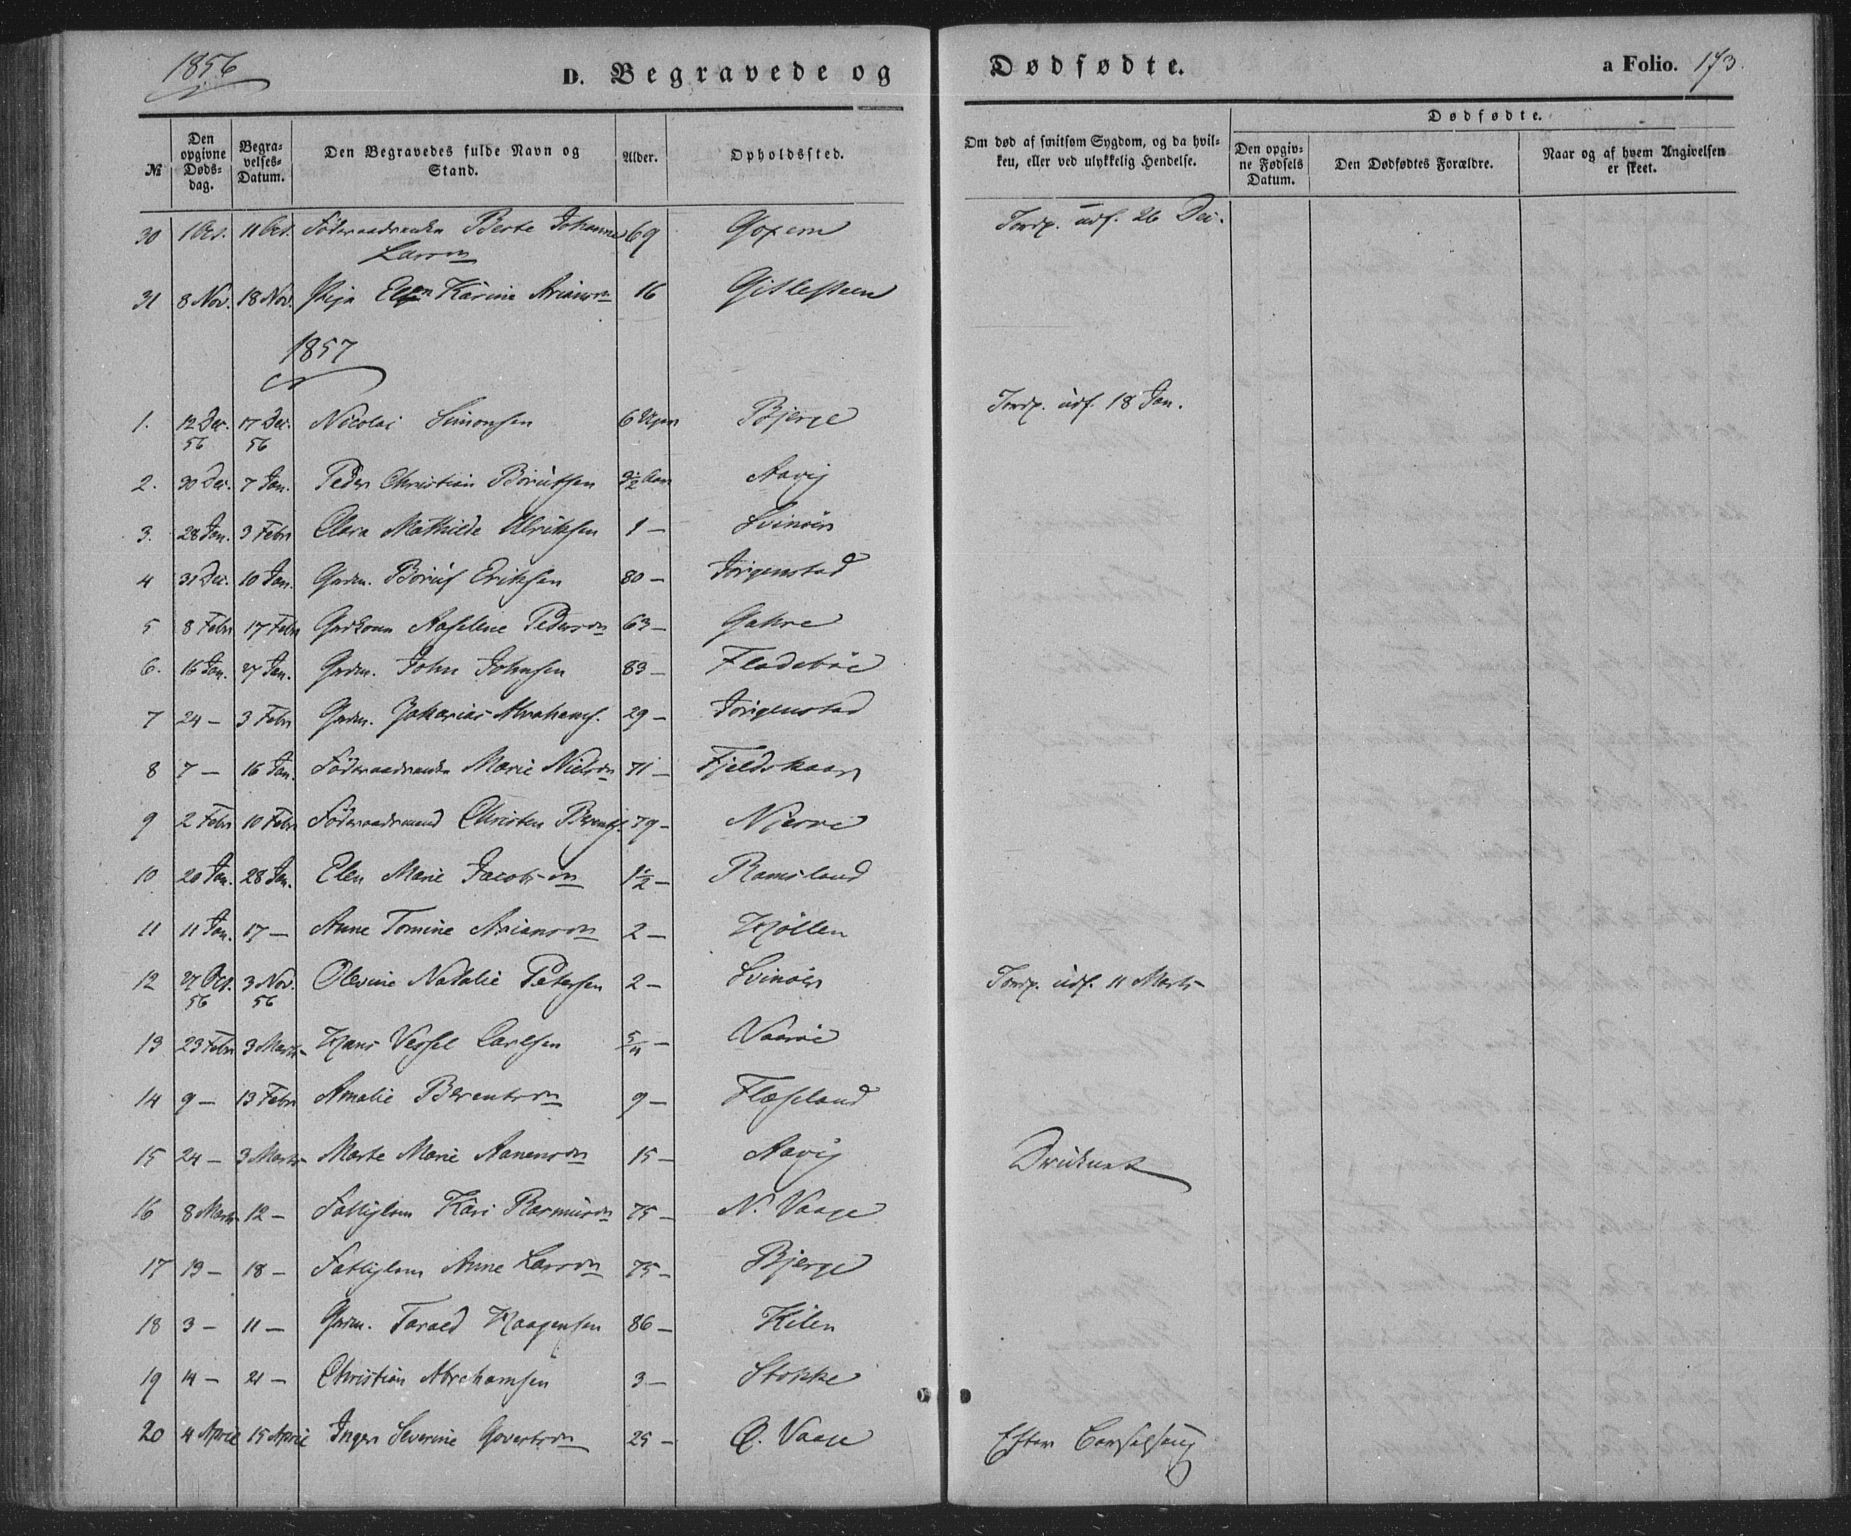 1856
D. Begravede og Dødfødte. a Folio. 173.
№ Den opgivne Døds-dag. Begra-velses-Datum. Den Begravedes fulde Navn og Stand. Alder. Opholdssted. Om død af smitsom Sygdom, og da hvil-ken, eller ved ulykkelig Hendelse. Dødfødte. Den opgiv-ne Fødsels Datum. Den Dødfødtes Forældre. Naar og af hvem Angivelsen er skeet.
30 1 Oct. 11 Oct. Føderaadsenke Berte Johanne 69 Jordp. udf. 26 Dec.
Larsdn
31 8 Nov. 18 Nov. Pige Elen Karine Ariansdn 16 Gitlesteen
1857
1. 12 Dec. 17 Dec. Nicolai Simonsen 6 Uger Bjerge Jordp. udf. 18 Jan.
56 56
2. 30 Dec. 7 Jan. Peder Christian Børufsen Aavig
3. 28 Jan. 3 Febr Clara Mathilde Ulriksen 1 — Svinøer
4 31 Dec. 10 Jan. Grdm. Børuf Eriksen 80 — Jørgenstad
5 8 Febr 17 Febr Grdkone Aaselene Pedersdn 63 — Gahre
6. 16 Jan. 27 Jan. Grdm. John Johnsen 83 — Fladebøe
7 24 — 3 Febr Grdm. Zakarias Abrahams. 29 — Jørgenstad
8 7 — 16 Jan. Føderaadsenke Marie Nielsdn 71 — Fjeldskaar
9 2 Febr 10 Febr Føderaadsmand Christen Berents. 79 — Njerve
10 20 Jan. 28 Jan. Elen Marie Jacobsdn 1½ — Ramsland
11 11 Jan. 17 — Anne Tomine Ariansdn 2 — Høllen
12 27 Oct. 3 Nov. Olevine Natalie Petersen 2 — Svinøer Jordp. udf. 11 Marts
56 56
13 23 Febr 3 Marts Hans Vessel Carlsen Vaarøe
14 9 — 13 Febr Amalie Berentsdn 9 — Flæseland
15 24 — 3 Marts Marte Marie Aanensdn 15 — Aavig Druknet
16 8 Marts 12 — Fattiglem Kari Rasmusdn 75 — N. Vaage
17 13 — 18 — Fattiglem Anne Larsdn 75 — Bjerge
18 3 — 11 — Grdm. Tarald Haagensen 86 — Kilen
19 14 — 21 — Christian Abrahamsen 3 — Stokke
20 4 April 15 April Inger Severine Govertsdn 25 — O. Vaage Efter Barselseng